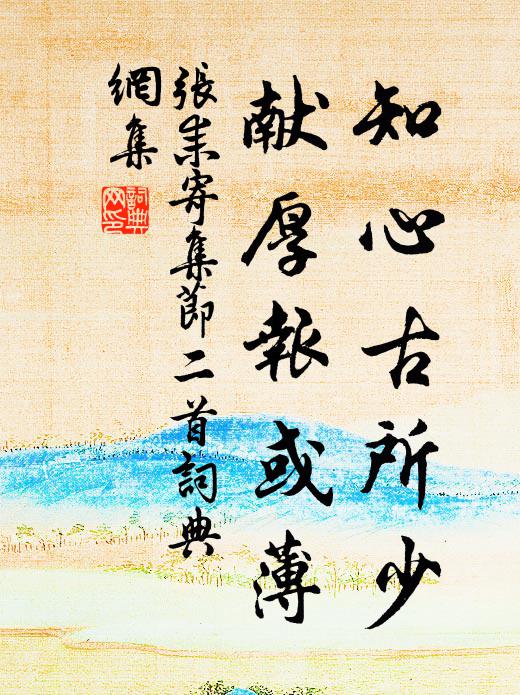 知心古所少
献厚報或薄
張耒寄集節二首詞典
網集
詞典
网印